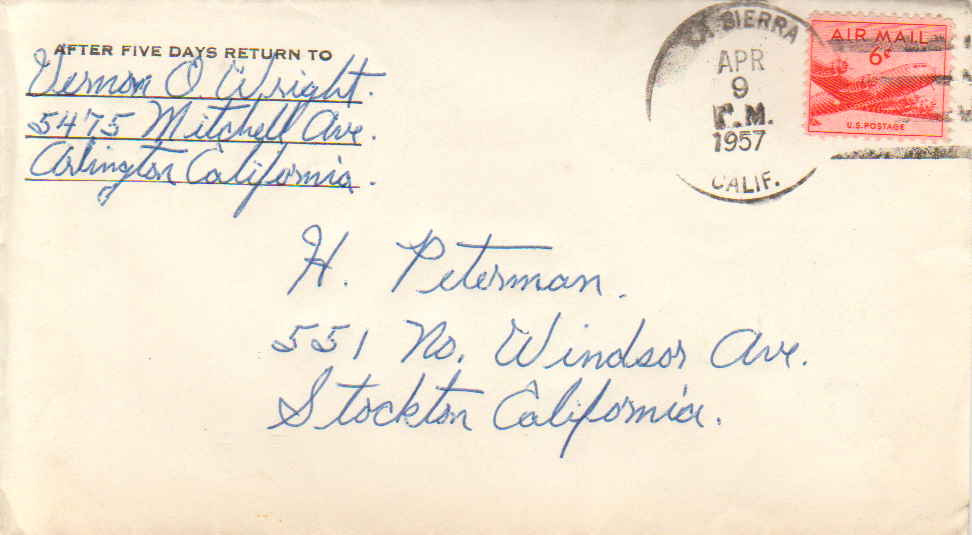 AFTER FIVE DAYS RETURN TO
Vernon O. Wright.
5475 Mitchell Ave.
Arlington California.
LA SIERRA
APR
9
P.M.
1957
CALIF.
AIR MAIL
6¢
U.S. POSTAGE
H. Peterman.
551 No. Windsor Ave.
Stockton California.